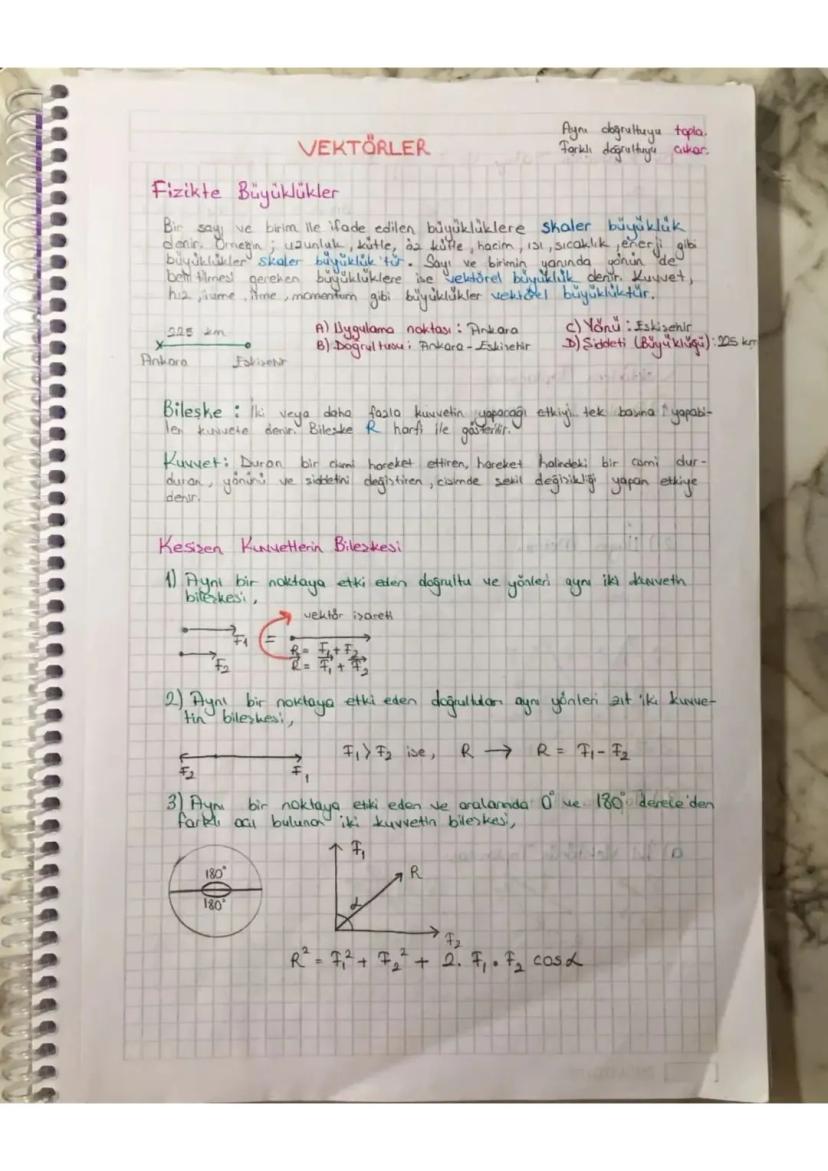 Aynı doğrultuyu topla.
Farklı doğrultuyu çıkar.
VEKTÖRLER
Fizikte Büyüklükler
Bir sayı ve birim ile ifade edilen büyüklüklere skaler büyüklük
denir. Örneğin ; uzunluk, kütle, öz kütle, hacim, ısı, sıcaklık, enerji gibi
büyüklükler skaler büyüklük'tür. Sayı ve birimin yanında yönün de
belirtilmesi gereken büyüklüklere ise vektörel büyüklük denir. Kuvvet,
hız, ivme, itme, momentum gibi büyüklükler vektörel büyüklüktür.
225 km
Ankara Eskişehir
A) Uygulama noktası : Ankara
B) Doğrultusu : Ankara - Eskişehir
C) Yönü : Eskişehir
D) Şiddeti (Büyüklüğü) : 225 km
Bileşke : İki veya daha fazla kuvvetin yapacağı etkiyi tek başına yapabi-
len kuvvete denir. Bileşke R harfi ile gösterilir.
Kuvvet : Duran bir cismi hareket ettiren, hareket halindeki bir cismi dur-
duran, yönünü ve şiddetini değiştiren, cisimde şekil değişikliği yapan etkiye
denir.
Kesişen Kuvvetlerin Bileşkesi
1) Aynı bir noktaya etki eden doğrultu ve yönleri aynı iki kuvvetin
bileşkesi,
vektör işareti
F₁ =
F₂
R = F₁ + F₂
R = F₁ + F₂
2) Aynı bir noktaya etki eden doğrultuları aynı yönleri zıt iki kuvve-
tin bileşkesi,
F₂ F₁
F₁ > F₂ ise, R → R = F₁ - F₂
3) Aynı bir noktaya etki eden ve aralarında 0° ve 180° derece'den
farklı açı bulunan iki kuvvetin bileşkesi,
180°
180°
F₁
R
α
F₂
R² = F₁² + F₂² + 2. F₁ . F₂ cosα